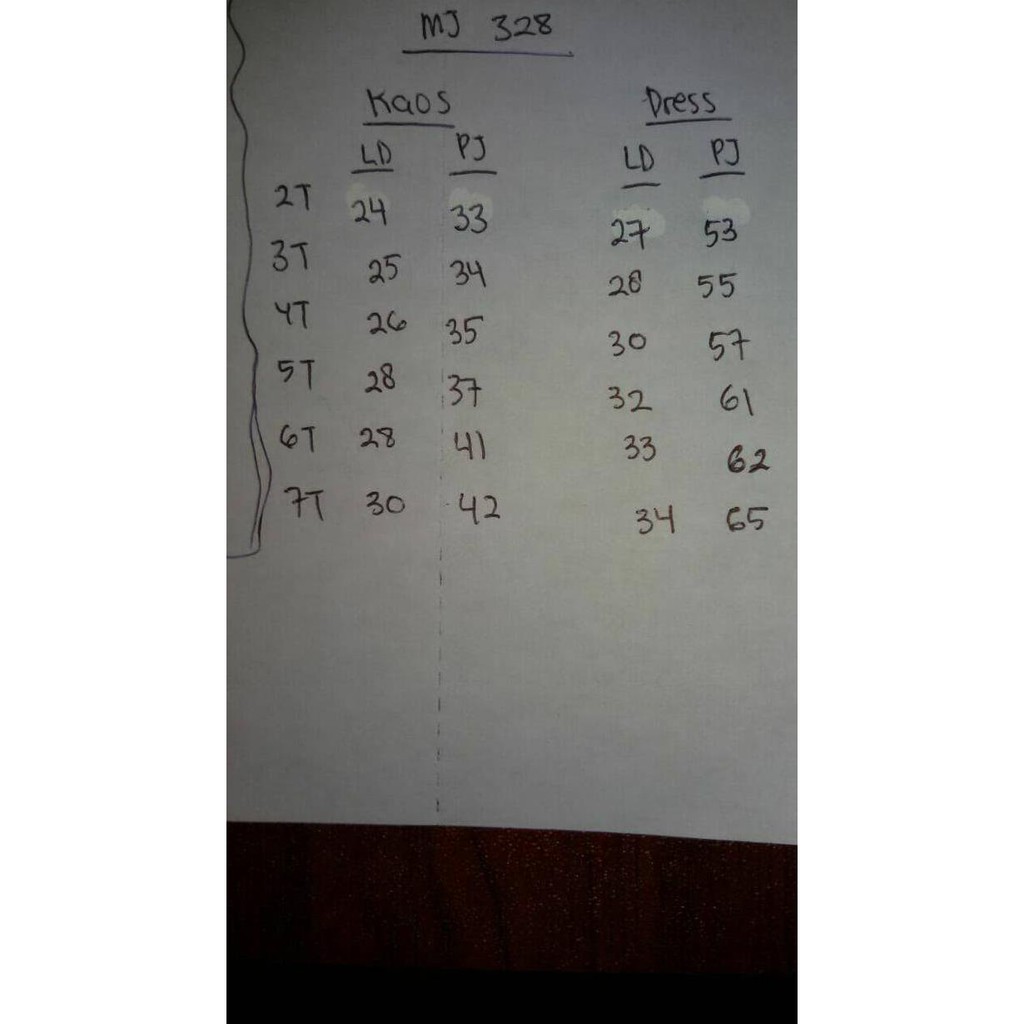 MJ 328
Kaos Dress
LD PJ LD PJ
2T 24 33 27 53
3T 25 34 28 55
4T 26 35 30 57
5T 28 37 32 61
6T 28 41 33 62
7T 30 42 34 65